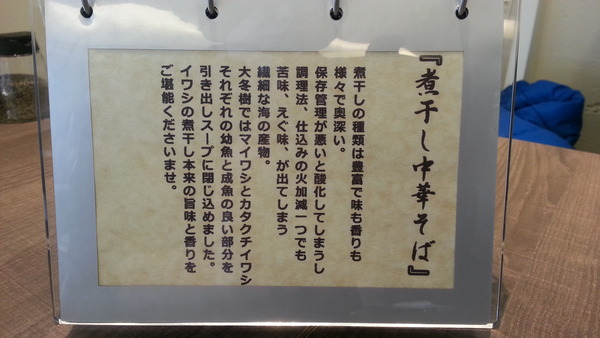 『煮干し中華そば』
煮干しの種類は豊富で味も香りも
様々で奥深い。
保存管理が悪いと酸化してしまうし
調理法、仕込みの火加減一つでも
苦味、えぐ味、が出てしまう
繊細な海の産物。
大冬樹ではマイワシとカタクチイワシ
それぞれの幼魚と成魚の良い部分を
引き出しスープに閉じ込めました。
イワシの煮干し本来の旨味と香りを
ご堪能くださいませ。